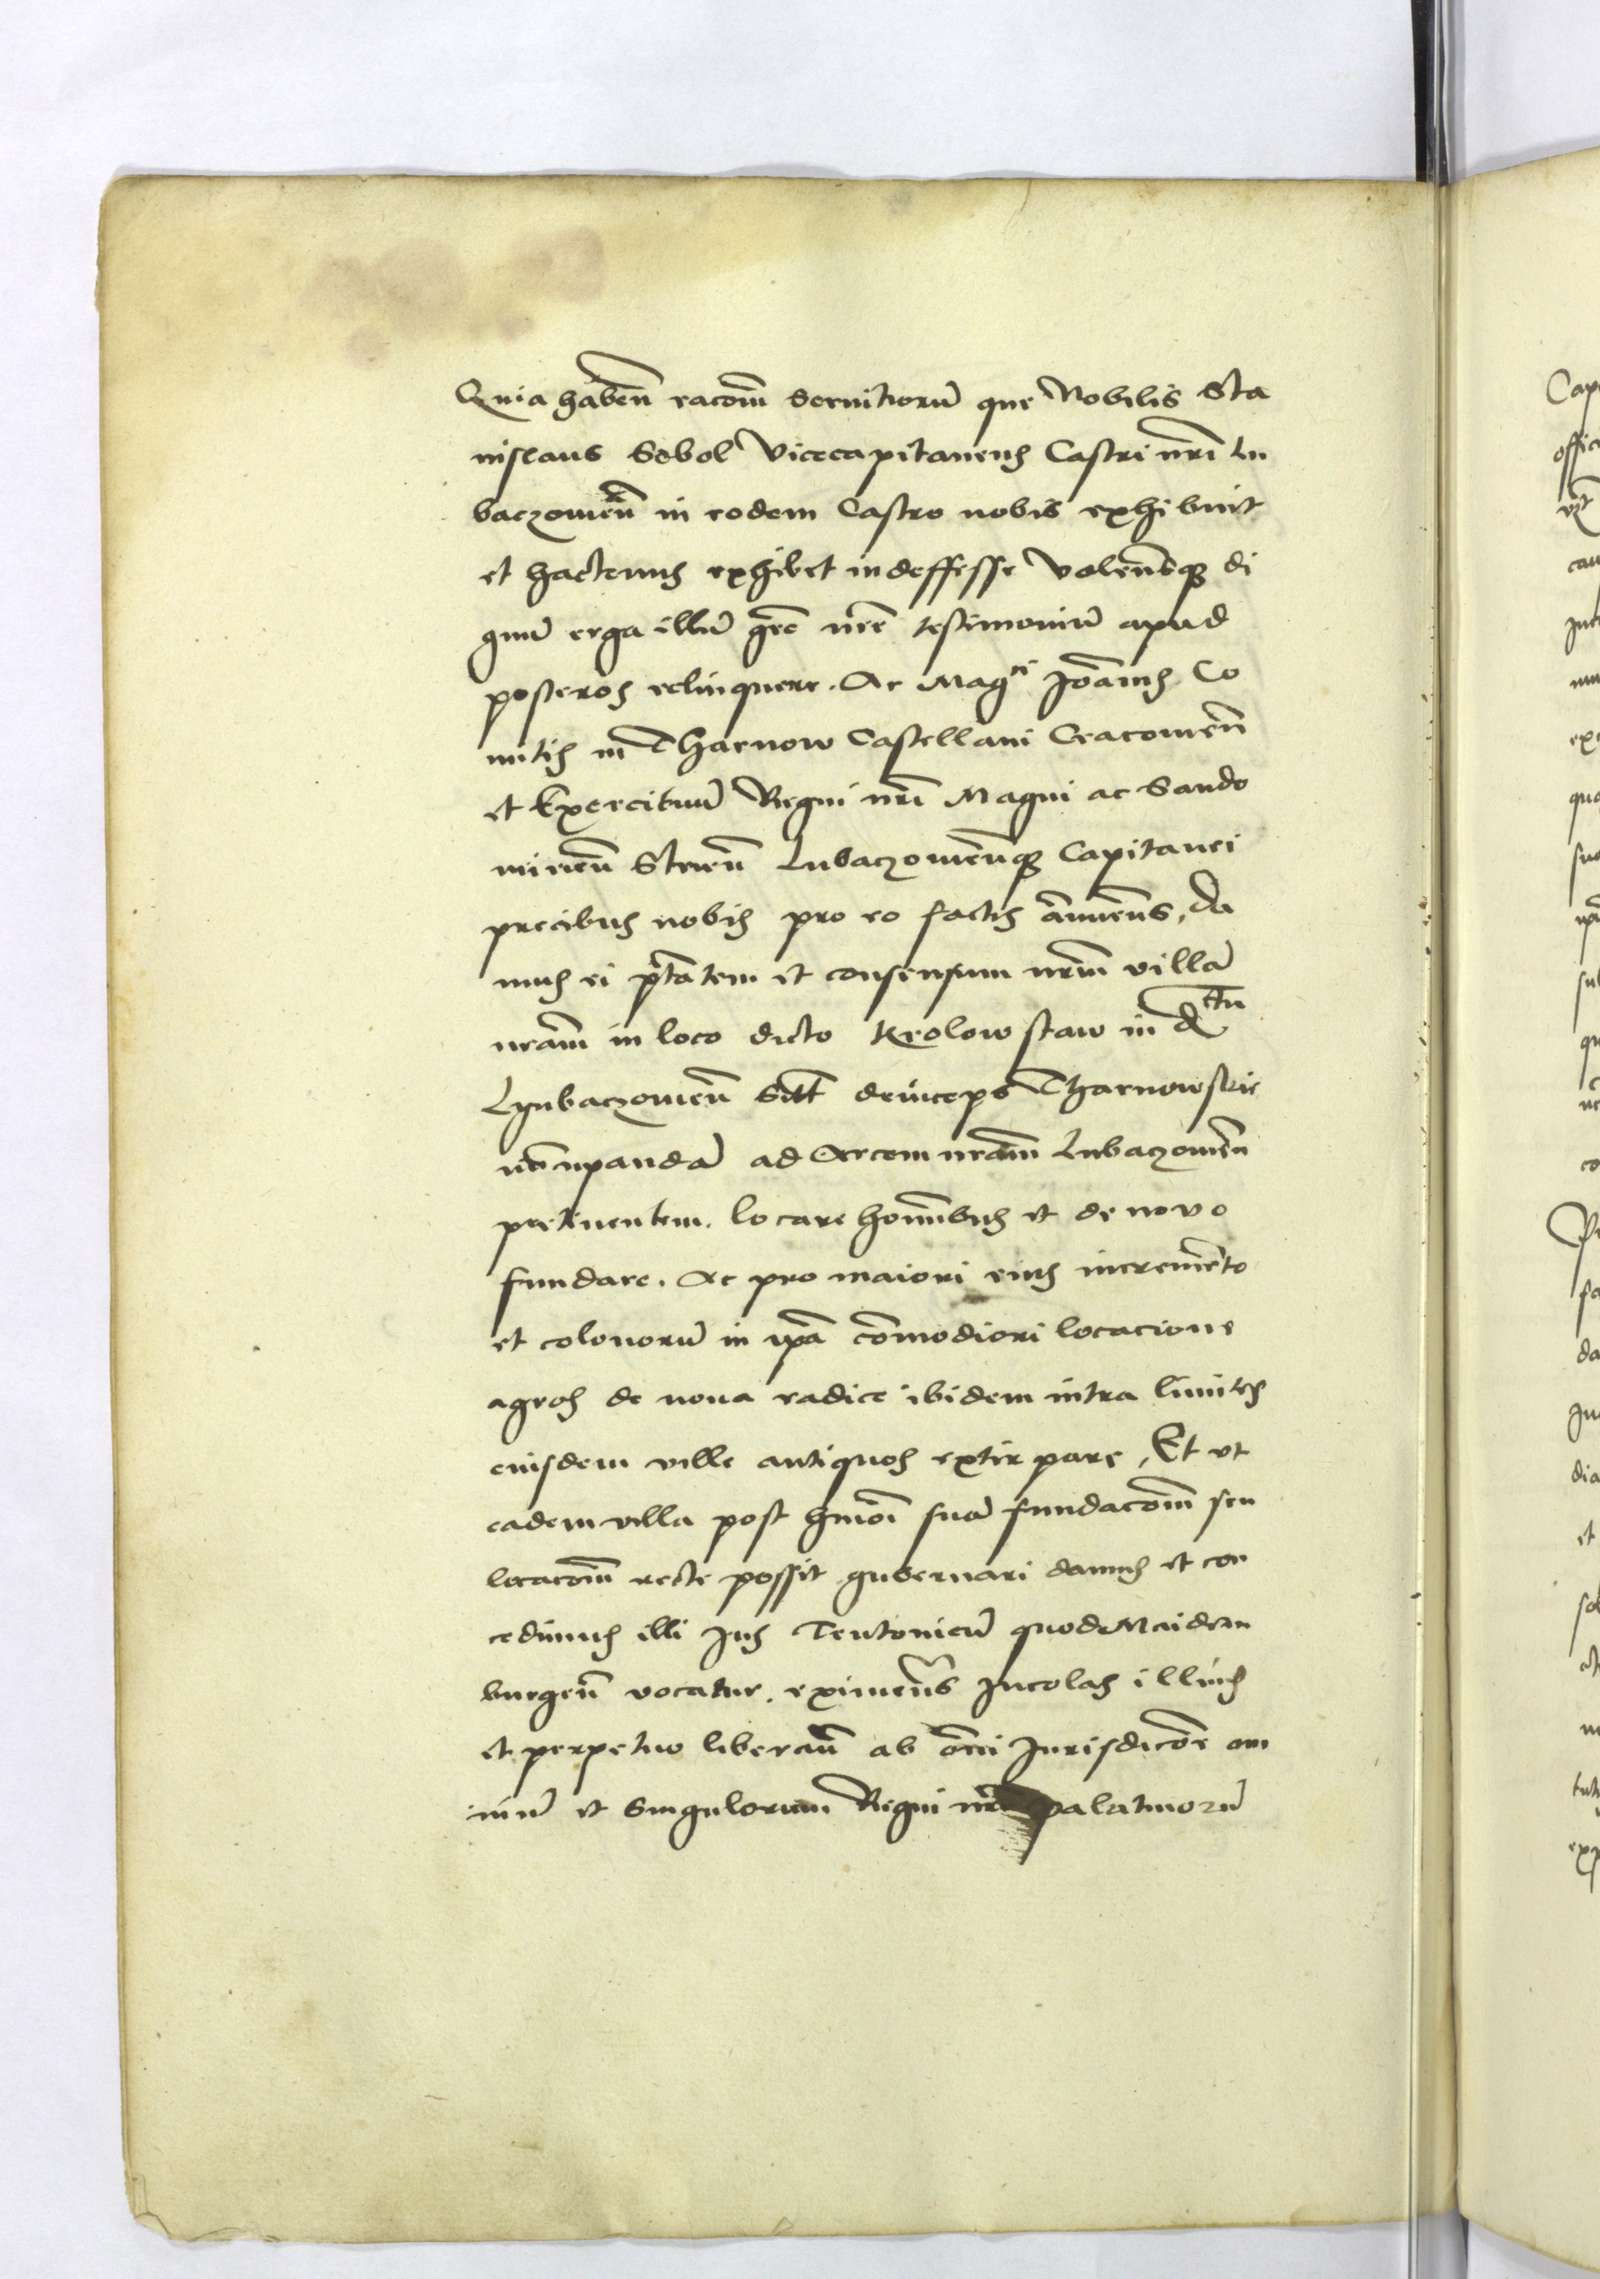 Quia habeñ racom̃ Seruitiorũ que Nobilis Sta
nislaus Sobol Vicecapitaneus Castri nr̃i Lu
baczowieñ in eodem Castro nobis exhibuit
et hactenus exhibet indeffesse volenẽsq̃ di
gnũ erga illũ gr̃e nr̃e testimoniũ apud
posteros relinquere. Ac Mag^ci Joãnis Co
mitis in Tharnow Castellani Cracowieñ
et Exercituũ Regni nr̃i Magni ac Sando
mirieñ Strieñ Lubaczowieñq̃ Capitanei
precibus nobis pro eo factis añuens, da
mus ei p̃tatem et consensum nr̃um villã
nr̃am in loco dicto Krolow staw in d^ttu
Lyubaczowieñ Sitã deinceps Tharnowskie
nũcupandã ad Arcem nr̃am Lubaczowieñ
pertinentem. locare hominibus et de novo
fundare. Ac pro maiori eius incremẽto
et colonorũ in ip̃a com̃odiori locacione
agros de noua radice ibidem intra limites
eiusdem ville antiquos extirpare, Et vt
eadem villa post hmõi suã fundacom̃ seu
locacom̃ recte possit gubernari damus et con
cedimus illi Jus Teutonicũ quod Maidem
burgeñ vocatur. eximen̄s Jncolas illius
et perpetuo liberañ ab om̃i Jurisdicõe om
niũ et Singulorum Regni nr̃i palatinorũ